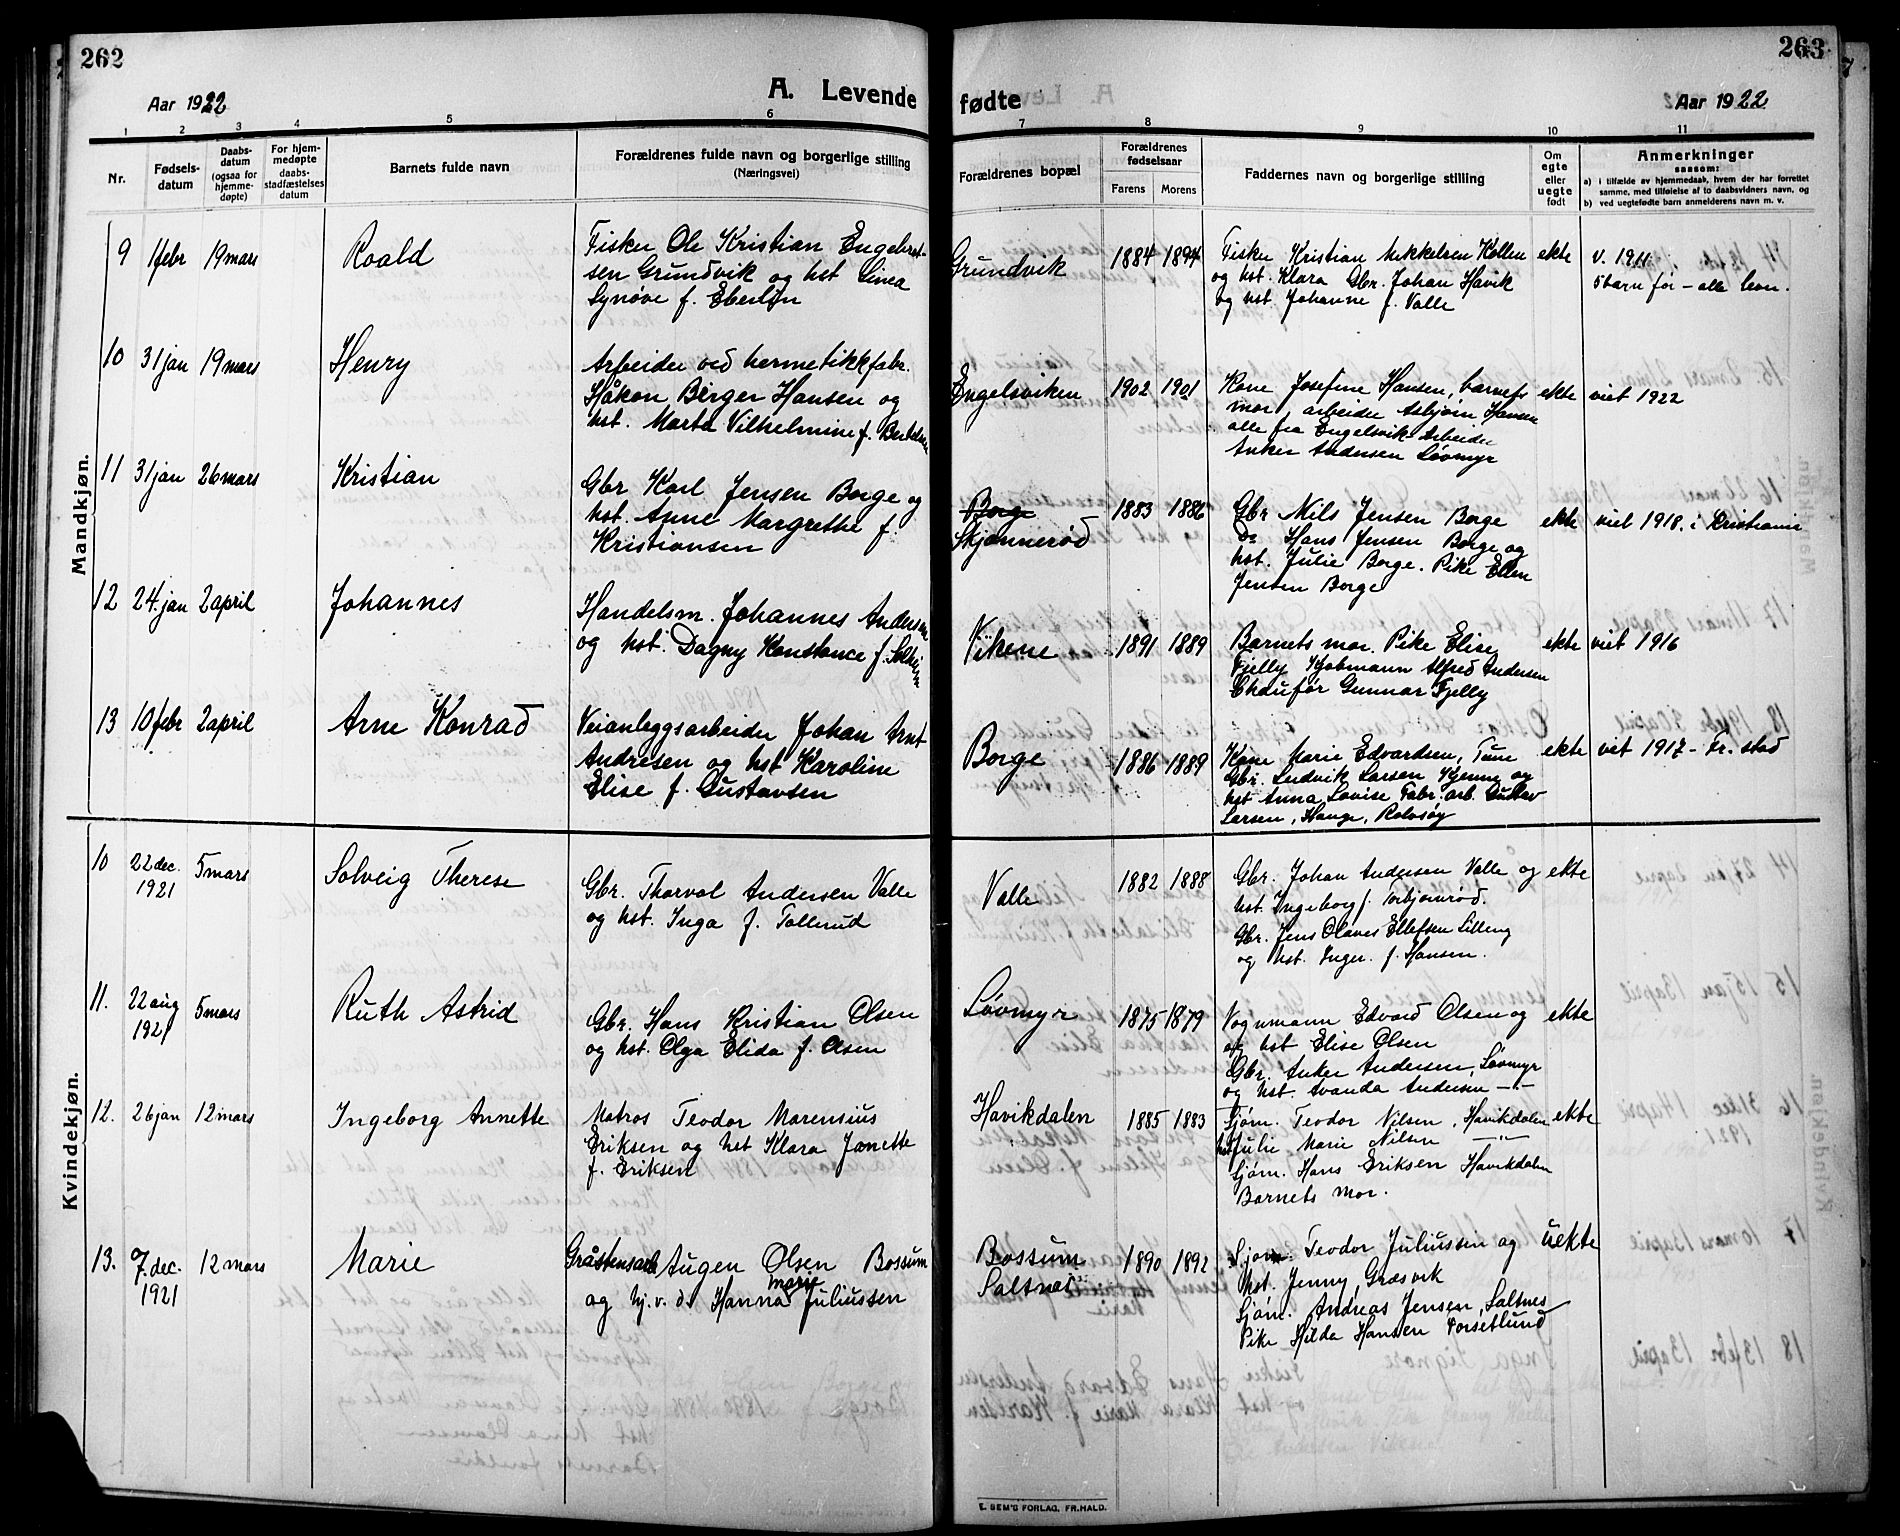 262
263
Aar 1922
A. Levende
fødte
Aar 1922
1 2 3 4 5 6 7 8 9 10 11
Nr.
Fødsels-
datum
Daabs-
datum
(ogsaa for
hjemme-
døpte)
For hjem-
medøpte
daabs-
stadfæstelses
datum
Barnets fulde navn
Forældrenes fulde navn og borgerlige stilling
(Næringsvei)
Forældrenes bopæl
Forældrenes
fødselsaar
Farens Morens
Faddernes navn og borgerlige stilling
Om
egte
eller
uegte
født
Anmerkninger
saasom:
a) i tilfælde av hjemmedaab, hvem der har forrettet
samme, med tilføielse af to daabsvidners navn, og
b) ved uegtefødte barn anmelderens navn m. v.
Mandkjøn.
9 1 febr 19 mars Roald
Fisker Ole Kristian Engebret-
sen Grundvik og hst Linea
Synøve f. Eberløn
Grundvik 1884 1894
Fisker Kristian Mikkelsen Kollen
og hst. Klara Gbr. Johan Havik
og hst. Johanne f. Valle
ekte
v. 1911
5 barn før - alle leon.
10 31 jan 19 mars Henry
Arbeider ved hermetikkfabr.
Håkon Birger Hansen og
hst. Marta Vilhelmine f. Bertelsen
Engelsviken 1902 1901
Kone Josefine Hansen, barnefr
mor, arbeider Asbjørn Hansen
alle fra Engelsvik Arbeider
Anker Andersen Løvmyr
ekte viet 1922
11 31 jan 26 mars Kristian
Gbr Karl Jensen Borge og
hst. Anne Margrethe f.
Kristiansen
Borge
Skjønnerød 1883 1886
Gbr Nils Jensen Borge
Do Hans Jensen Borge og
hst. Julie Borge. Pike Ellen
Jensen Borge
ekte viet 1918 i Kristiania
12 24. jan 2 april Johannes
Handelsm. Johannes Andersen
og hst. Dagny Konstance f. Solheim
Vikene 1891 1889
Barnets mor. Pike Elise
Fjelly Kjøbmann Alfred Andersen
Chaufør Gunnar Fjelly
ekte viet 1916
13 10 febr 2 april Arne Konrad
Veianleggsarbeider Johan Arnt
Andresen og hst Karoline
Elise f. Gustavsen
Borge 1886 1889
Kone Marie Edvardsen, Tune
Gbr. Ludvik Larsen Kjenne og
hst Anna Lovise Fabr. arb. Gustav
Larsen, Hauge, Rolvsøy
ekte viet 1917 - Fr. stad
Kvindekjøn.
10 22 dec.
1921 5 mars Solveig Therese
Gbr. Thorval Andersen Valle
og hst. Inga f. Tollerud
Valle 1882 1888
Gbr. Johan Andersen Valle og
hst. Ingeborg f. Torbjørnrød.
Gbr. Jens Olaves Ellefsen Lilleng
og hst. Inger f. Hansen.
ekte
11. 22 aug
1921 5 mars Ruth Astrid
Gbr. Hans Kristian Olsen
og hst. Olga Elida f. Olsen
Løvmyr 1875 1879
Vognmann Edvard Olsen og
og hst Elise Olsen
Gbr. Anker Andersen, Løvmyr
og hst. Avanda Andersen -"-
ekte
12. 26 jan 12 mars Ingeborg Annette
Matros Teodor Marensius
Eriksen og hst Klara Janette
f. Eriksen
Havikdalen 1885 1883
Sjøm. Teodor Nilsen, Havikdalen
hst Julie Marie Nilsen -"-
Sjøm. Hans Eriksen Havikdalen
Barnets mor.
ekte
13. 7 dec.
1921 12 mars Marie
Gråstensarb Augen Olsen Bossum
og hj. v. d. Hanna Marie Juliussen
Bossum
Saltnes 1890 1892
Sjøm. Teodor Juliussen og
hst. Jenny, Græsvik
Sjøm. Andreas Jensen, Saltnes
Pike Hilda Hansen Torsetlund
uekte
E. SEM'S FORLAG, FR.HALD.